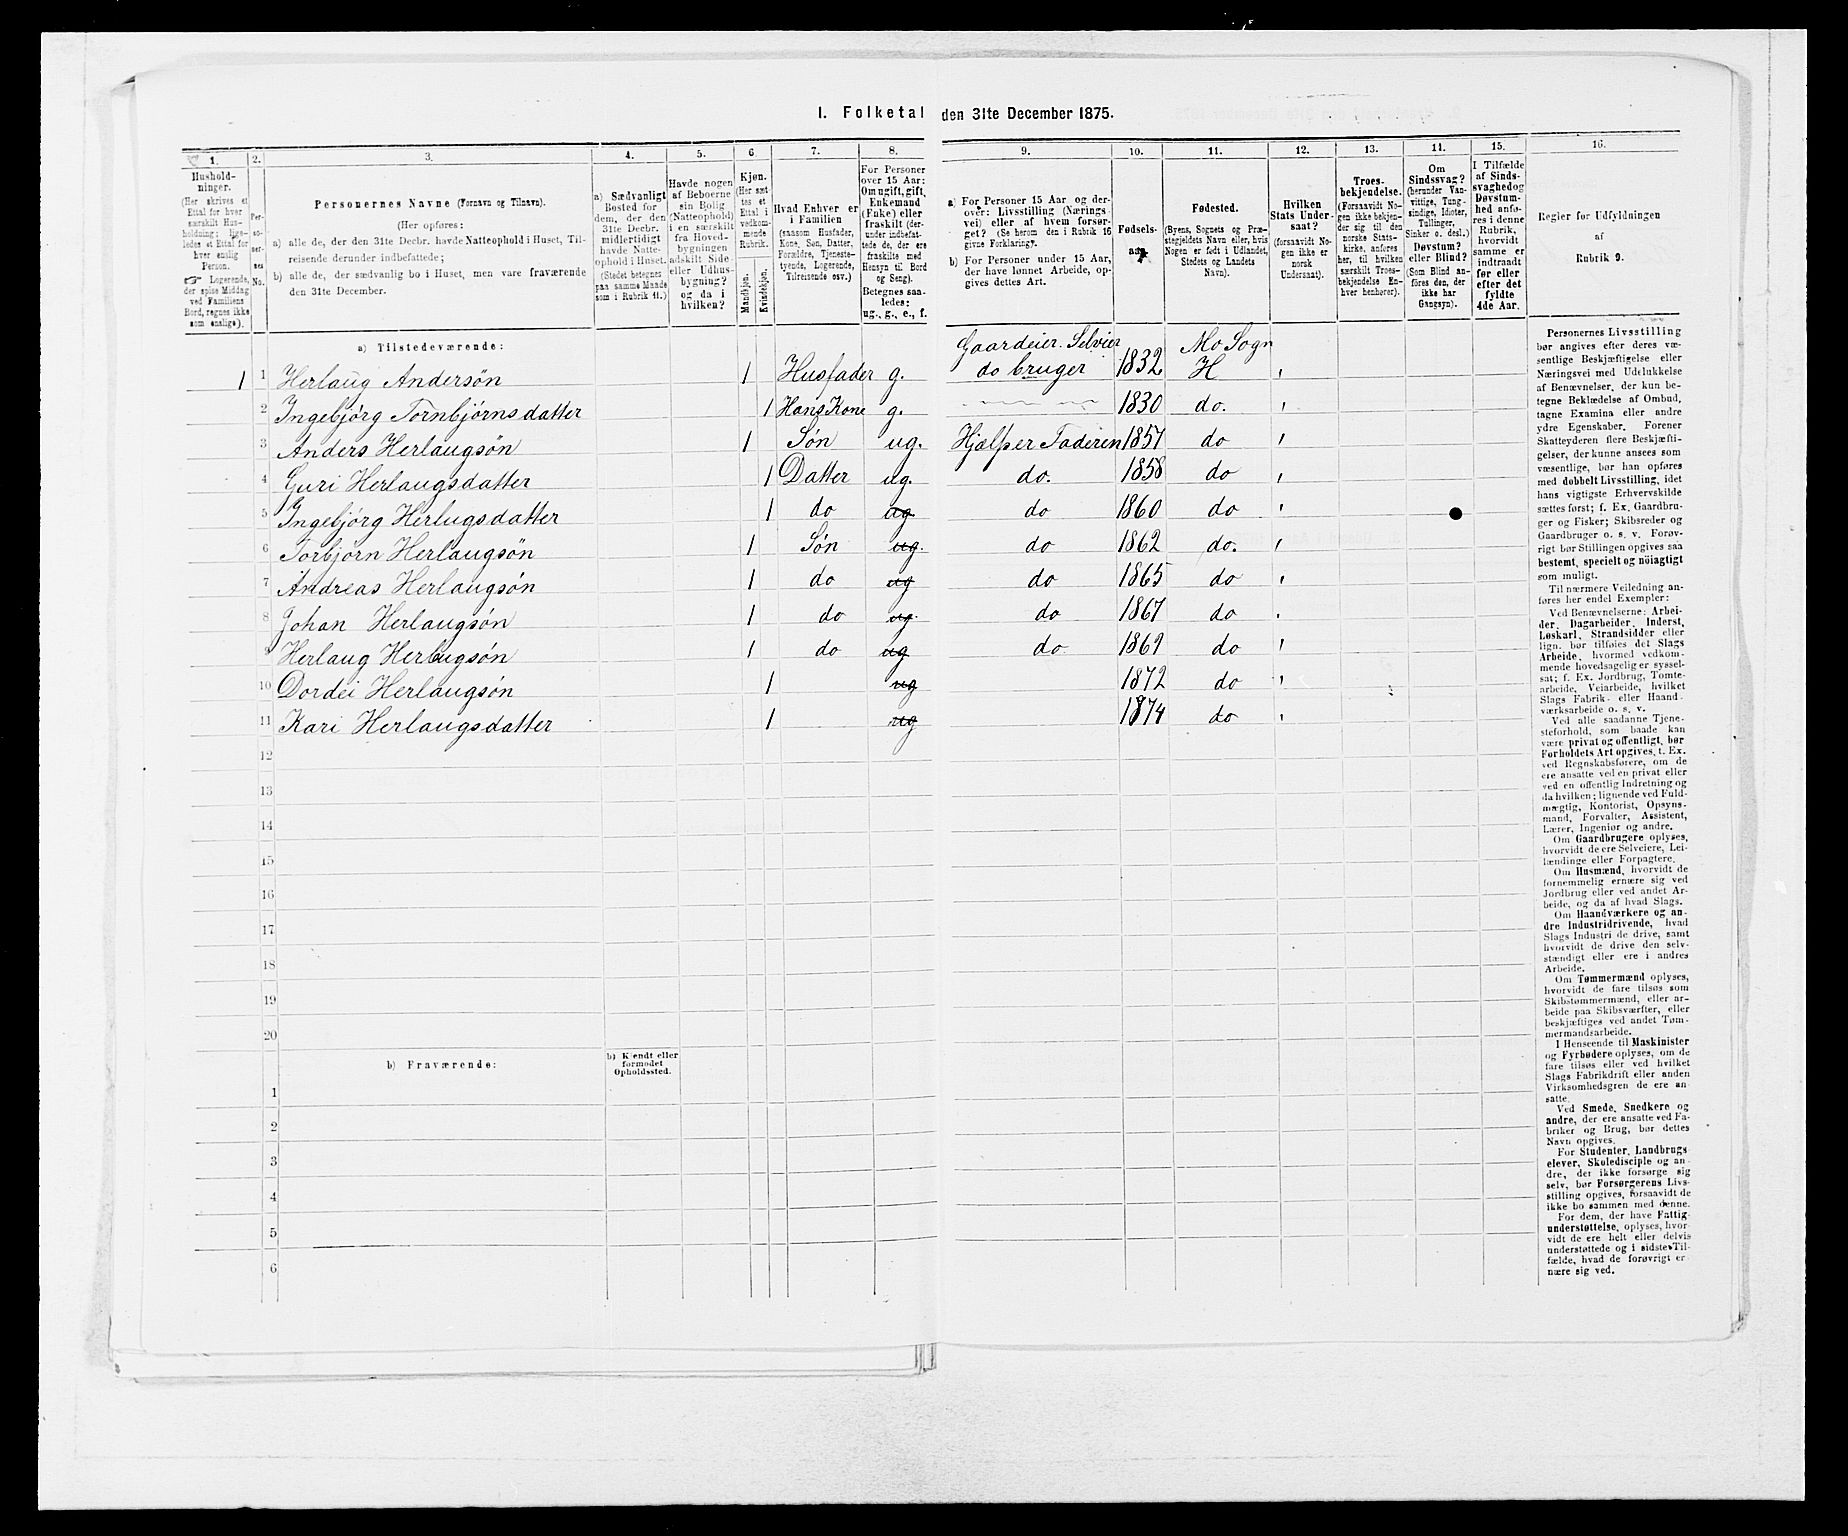 I. Folketal den 31te December 1875.
1. 2. 3. 4. 5. 6. 7. 8. 9. 10. 11. 12. 13. 14. 15. 16.
Husholdninger.
(Her skrives et
Ettal for hver
særskilt Husholdning;
ligeledes et Ettal for
hver enslig
Person.
☞ Logerende,
der spise Middag
ved Familiens
Bord, regnes ikke
som enslige).
Personernes No.
Personernes Navne (Fornavn og Tilnavn).
(Her opføres:
a) alle de, der den 31te Decbr. havde Natteophold i Huset, Tilreisende derunder indbefattede;
b) alle de, der sædvanlig bo i Huset, men vare fraværende
den 31te December.
a) Sædvanligt
Bosted for
dem, der den
31te Decbr.
midlertidigt
havde Natteophold i Huset.
(Stedet betegnes
paa samme Maade
som i Rubrik 11.)
Havde nogen
af Beboerne
sin Bolig
(Natteophold)
i en særskilt
fra Hovedbygningen
adskilt Side-
eller Udhusbygning?
og da i
hvilken?
Kjøn.
(Her sættes et
Ettal i
vedkommende
Rubrik.
Mandkjøn.
Kvindekjøn.
Hvad Enhver er
i Familien
(saasom Husfader,
Kone, Søn, Datter,
Forældre, Tjenestetyende, Logerende,
Tilreisende osv.)
For Personer
over 15 Aar:
Om ugift, gift,
Enkemand
(Enke) eller
fraskilt (derunder indbefattede de, der ere
fraskilte med
Hensyn til Bord
og Seng).
Betegnes saaledes:
ug., g., e., f.
a) For Personer 15 Aar og derover: Livsstilling (Næringsvei) eller af hvem forsørget? (Se herom den i Rubrik 16
givne Forklaring).
b) For Personer under 15 Aar,
der have lønnet Arbeide, opgives dettes Art.
Fødselsaar.
Fødested.
(Byens, Sognets og Præstegjeldets Navn eller, hvis
Nogen er født i Udlandet,
Stedets og Landets
Navn).
Hvilken
Stats Undersaat?
(forsaavidt Nogen ikke er
norsk
Undersaat).
Troesbekjendelse.
(Forsaavidt Nogen ikke bekjender sig til den
norske Statskirke, anføres
her, til hvilken
særskilt Troesbekjendelse Enhver henhører).
Om
Sindssvag?
(herunder Vanvittige, Tungsindige, Idioter,
Tullinger,
Sinker o. desl.)
Døvstum?
eller Blind?
(Som Blind anføres den, der
ikke har
Gangsyn).
I Tilfælde
af Sindssvaghed og
Døvstumhed anføres i denne
Rubrik,
hvorvidt
samme er
indtraadt
før eller
efter det
fyldte
4de Aar.
Regler for Udfyldningen
af
Rubrik 9.
a) Tilstedeværende:
Gaardeier. Selveier Mo Sogn
1 1 Herlaug Andersön 1 Husfader g. do bruger 1832 H
2 Ingebjørg Tornbjørnsdatter 1 Hans Kone g. 1830 do.
3 Anders Herlaugsön 1 Søn ug. Hjælper Faderen 1857 do
4 Guri Herlaugsdatter 1 Datter ug. do. 1858 do
5 Ingebjörg Herlugsdatter 1 do ug do 1860 do
6 Torbjørn Herlaugsön 1 Søn ug. do 1862 do.
7 Andreas Herlaugsön 1 do ug do 1865 do
8 Johan Herlaugsön 1 do ug. do 1867 do
9 Herlaug Herlaugsón 1 do ug do 1869 do
10 Dordei Herlaugsón 1 ug 1872 do
11 Kari Herlaugsdatter 1 ug 1874 do
12
13
14
15
16
17
18
19
20
b) Fraværende:
b) Kjendt eller
formodet
Opholdssted.
1
2
3
4
5
6
Personernes Livsstilling
bør angives efter deres væsentlige Beskjæftigelse eller
Næringsvei med Udelukkelse
af Benævnelser, der kun betegne Beklædelse af Ombud,
tagne Examina eller andre
ydre Egenskaber. Forener
Skatteyderen flere Beskjæftigelser, der kunne ansees som
væsentlige, bør han opføres
med dobbelt Livsstilling, idet
hans vigtigste Erhvervskilde
sættes først; f. Ex. Gaardbruger og Fisker; Skibsreder og
Gaardbruger o. s. v. Forøvrigt bør Stillingen opgives saa
bestemt, specielt og nöiagtigt
som muligt.
Til nærmere Veiledning anføres her endel Exempler:
Ved Benævnelserne: Arbeider, Dagarbeider, Inderst,
Løskarl, Strandsidder eller
lign. bør tilføies det Slags
Arbeide, hvormed vedkommende hovedsagelig er sysselsat; f. Ex. Jordbrug, Tomtearbeide, Veiarbeide, hvilket
Slags Fabrik- eller Haandværksarbeide o. s. v.
Ved alle saadanne Tjenesteforhold, som baade kan
være privat og offentligt, bør
Forholdets Art opgives, t. Ex.
ved Regnskabsførere, om de
ere ansatte ved en privat eller
ved en offentlig Indretning og
da hvilken; lignende ved Fuldmægtig, Kontorist, Opsynsmand, Forvalter, Assistent,
Lærer, Ingeniør og andre.
Om Gaardbrugere oplyses,
hvorvidt de ere Selveiere, Leilændinge eller Forpagtere.
Om Husmænd, hvorvidt de
fornemmelig ernære sig ved
Jordbrug eller ved andet Arbeide, og da af hvad Slags.
Om Haandværkere og andre Industridrivende, hvad
Slags Industri de drive, samt
hvorvidt de drive den selvstændigt eller ere i andres
Arbeide.
Om Tømmermænd oplyses,
hvorvidt de fare tilsøs som
Skibstømmermænd, eller arbeide paa Skibsværfter, eller
beskjæftiges ved andet Tømmermandsarbeide.
I Henseende til Maskinister
og Fyrbødere oplyses, om de
fare tilsøs eller ved hvilket
Slags Fabrikdrift eller anden
Virksomhedsgren de ere ansatte.
Ved Smede, Snedkere og
andre, der ere ansatte ved Fabriker og Brug, bør dettes
Navn opgives.
For Studenter, Landbrugselever, Skoledisciple og andre, der ikke forsørge sig
selv, bør Forsørgerens Livsstilling opgives, forsaavidt de
ikke bo sammen med denne.
For dem, der have Fattigunderstøttelse, oplyses, hvorvidt de ere helt eller delvis
understøttede og i sidste Tilfælde, hvad de forøvrigt ernære sig ved.